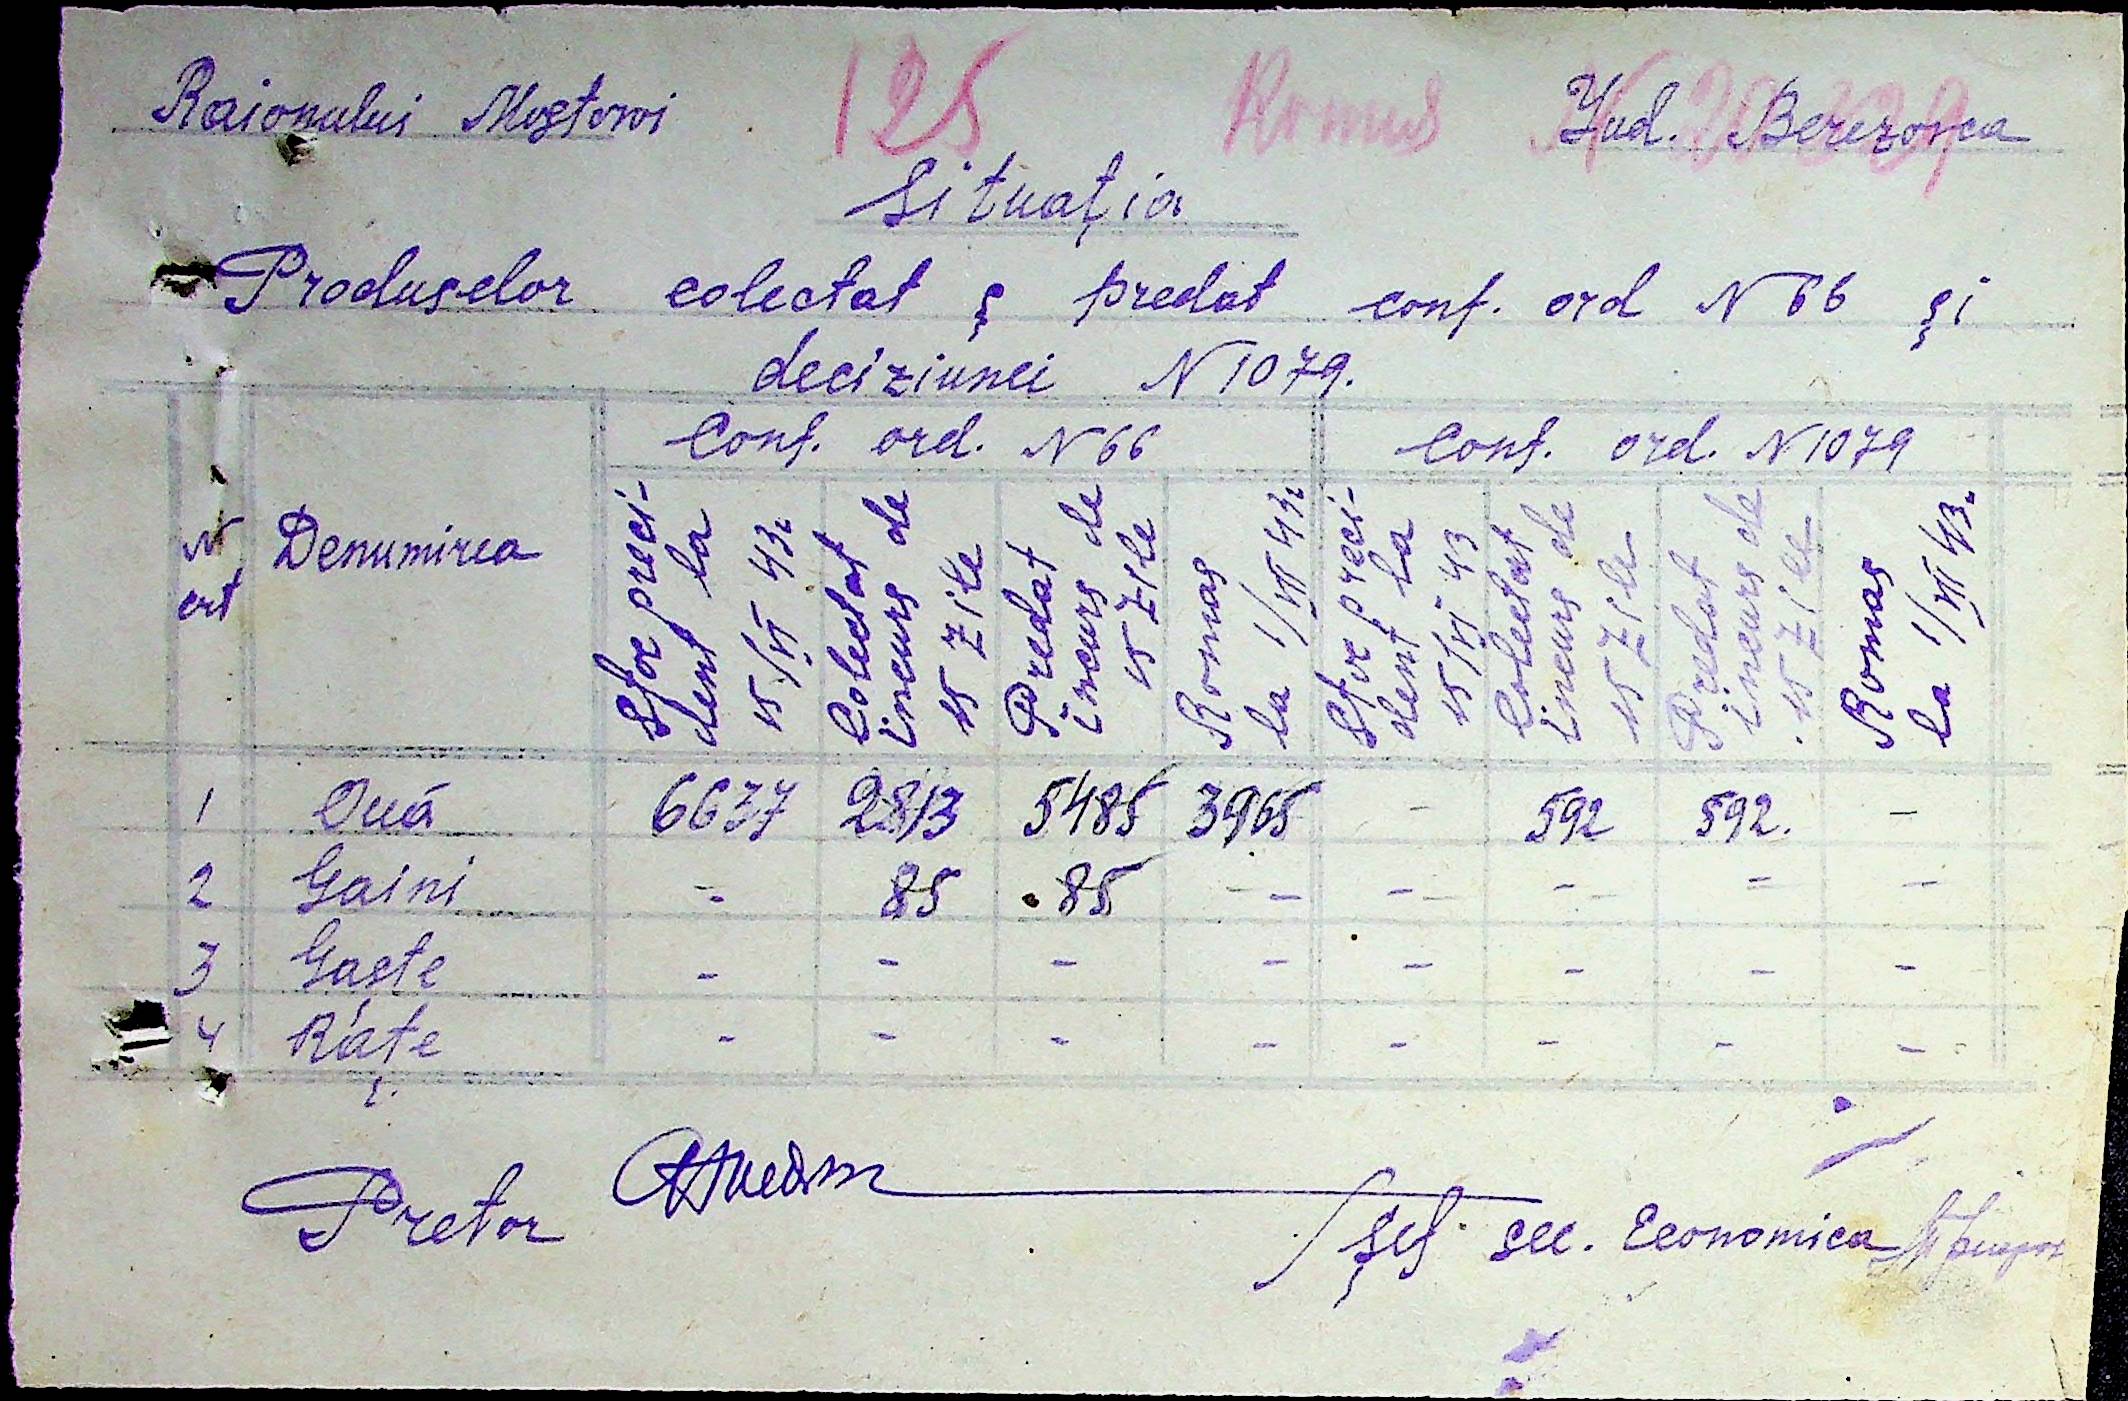 Raionului Mostovoi 125 Romus Jud. Berezovca
Situaţia
Produselor colectat ş predat conf. ord N 66 şi
deciziunei N 1079.
Conf. ord. N 66 Conf. ord. N 1079
N crt Denumirea
Stoc preci-
dent la
15/VI 43
Colectat
incurs de
15 zile
Predat
incurs de
15 zile
Romas
la 1/VII 43
Stoc preci-
dent la
15/VI 43
Colectat
incurs de
15 zile
Predat
incurs de
15 zile
Romas
la 1/VII 43
1 Ouă 6637 2813 5485 3965 - 592 592. -
2 Gaini - 85 85 - - - - -
3 Gaste - - - - - - - -
4 Rațe - - - - - - - -
Pretor
Şef sec. Economica